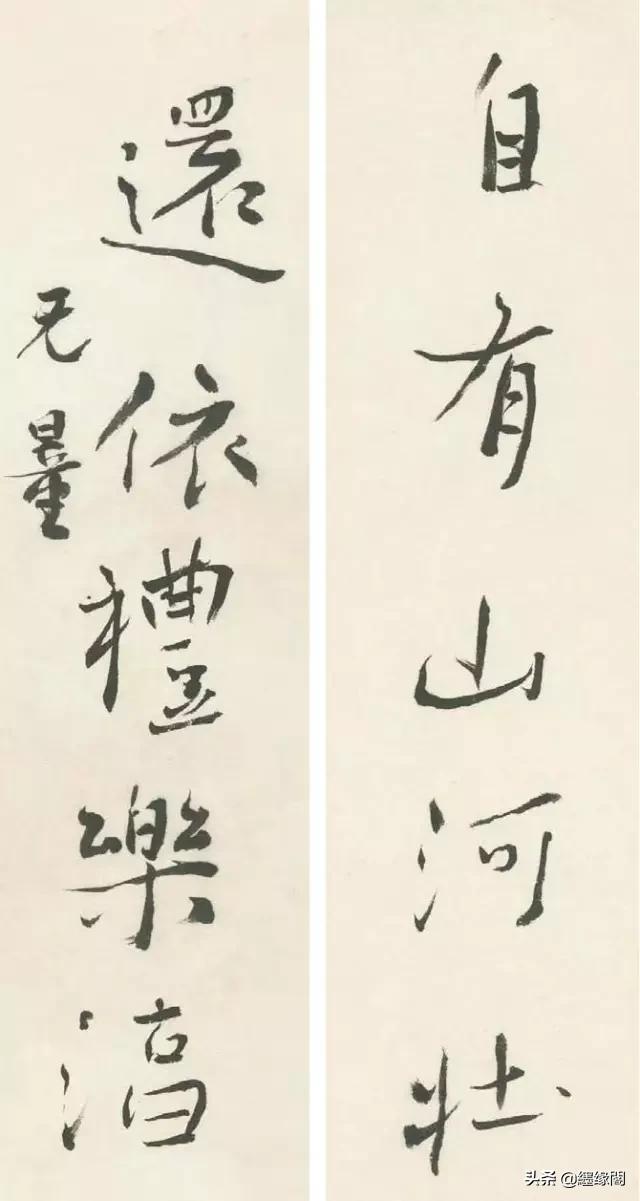 自有山河壮
還依禮樂淳
无量
头条 @纒缘閣